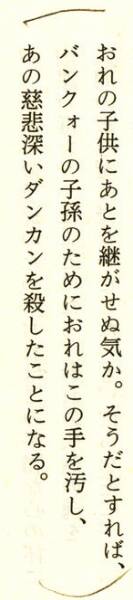 おれの子供にあとを継がせぬ気か。そうだとすれば、
バンクォーの子孫のためにおれはこの手を汚し、
あの慈悲深いダンカンを殺したことになる。